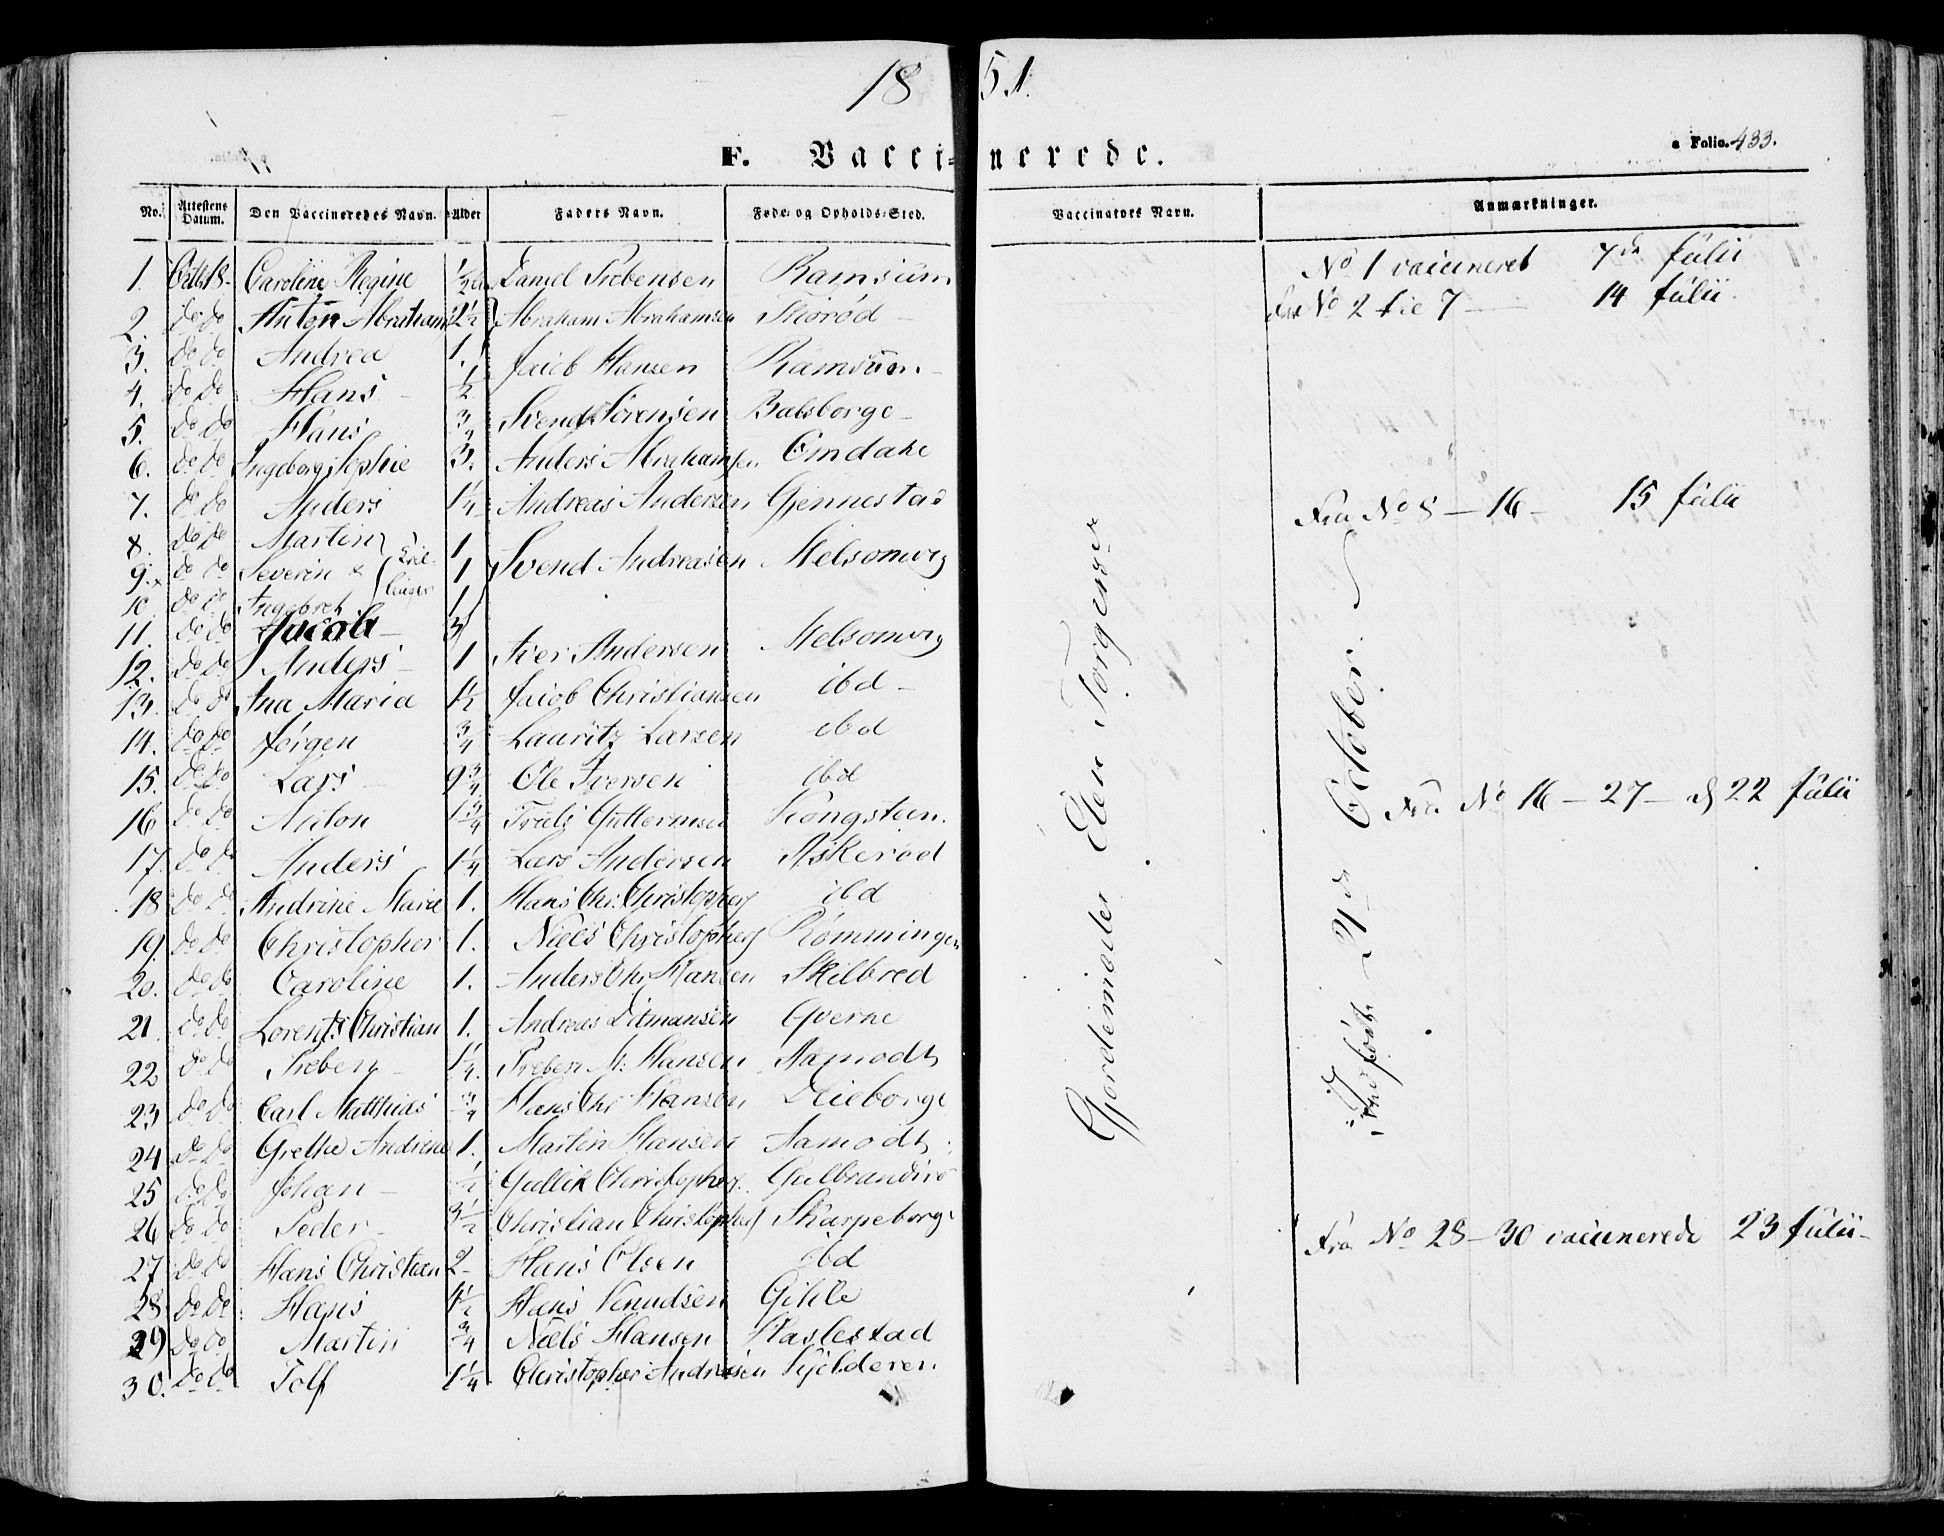 1851.
F. Vaccinerede.
a Folio. 433.
No. Attestens Datum. Den Vaccineredes Navn. Alder Faders Navn. Føde- og Opholds-Sted. Vaccinators Navn. Anmærkninger.
1. Octb 18- Caroline Regine 1/2 Daniel Prebensen Ramsum No 1 vaccineret 7de Julii
2. do do Anton Abraham 2 1/2 Abraham Abrahamsen Fra No 2 til 7 — 14 Julii
3. do do Andrea 1. Jacob Hansen Ramsum
4. do do Hans 1/2
5. do do Hans 3/4 Svend Sørensen Balsborge
6. do do Ingeborg Sophie 3. Anders Abrahamsen Omdahl
7. do do Anders 1 1/4 Andreas Andersen Gjennestad Fra No 8 — 16 — 15 Julii
8. do do Martin 1
9. x do do Severin x 1 Svend Andreasen Melsomvig
Tril- linger
10 do do Ingebret 1
11. do do Jacob 3
12. do do Anders 1 Iver Andersen Melsomvig
13. do do Ina Maria 1 1/2 Jacob Christiansen ibd
14. do do Jørgen 3/4 Lauritz Larsen ibd
15. do do Lars 9 3/4 Ole Iversen ibd
16 do do Anton 1 3/4 Truls Guttormsen Kongsteen. Fra No 16 — 27 — d 22 Julii
17. do do Anders 1 1/4 Lars Andersen Askerød
18 do do Andrine Marie 1. Hans Chr: Christophers ibd
19. do do Christopher 1. Niels Christophers Rømmingen
20. do do Caroline 1. Anders Chr Hansen Skilbred
21. do do Lorents Christian 1. Andreas Ditmansen Qverne
22 do do Preben 1 1/4. Preben M: Hansen Aamodt
23 do do Carl Matthias 3/4 Hans Chr Hansen
24 do do Grethe Andrine 1. Martin Hansen Aamodt
25 do do Johan 1/2 Gullik Christophers. Gulbrandsrø
26 do do Peder 3 1/2 Christian Christophers Skarpeborge
27 do do Hans Christian 2 Hans Olsen ibd
28 do do Hans 4 1/2 Hans Knudsen Gihle Fra No 28 — 30 vaccinerede 23 Julii
29 do do Martin 3/4 Niels Hansen Haslestad
30. do do Tolf 1 1/4 Christopher Andreasen Kjelderen
Gjordemoder Elen Jørgensen
Indført 21de October.